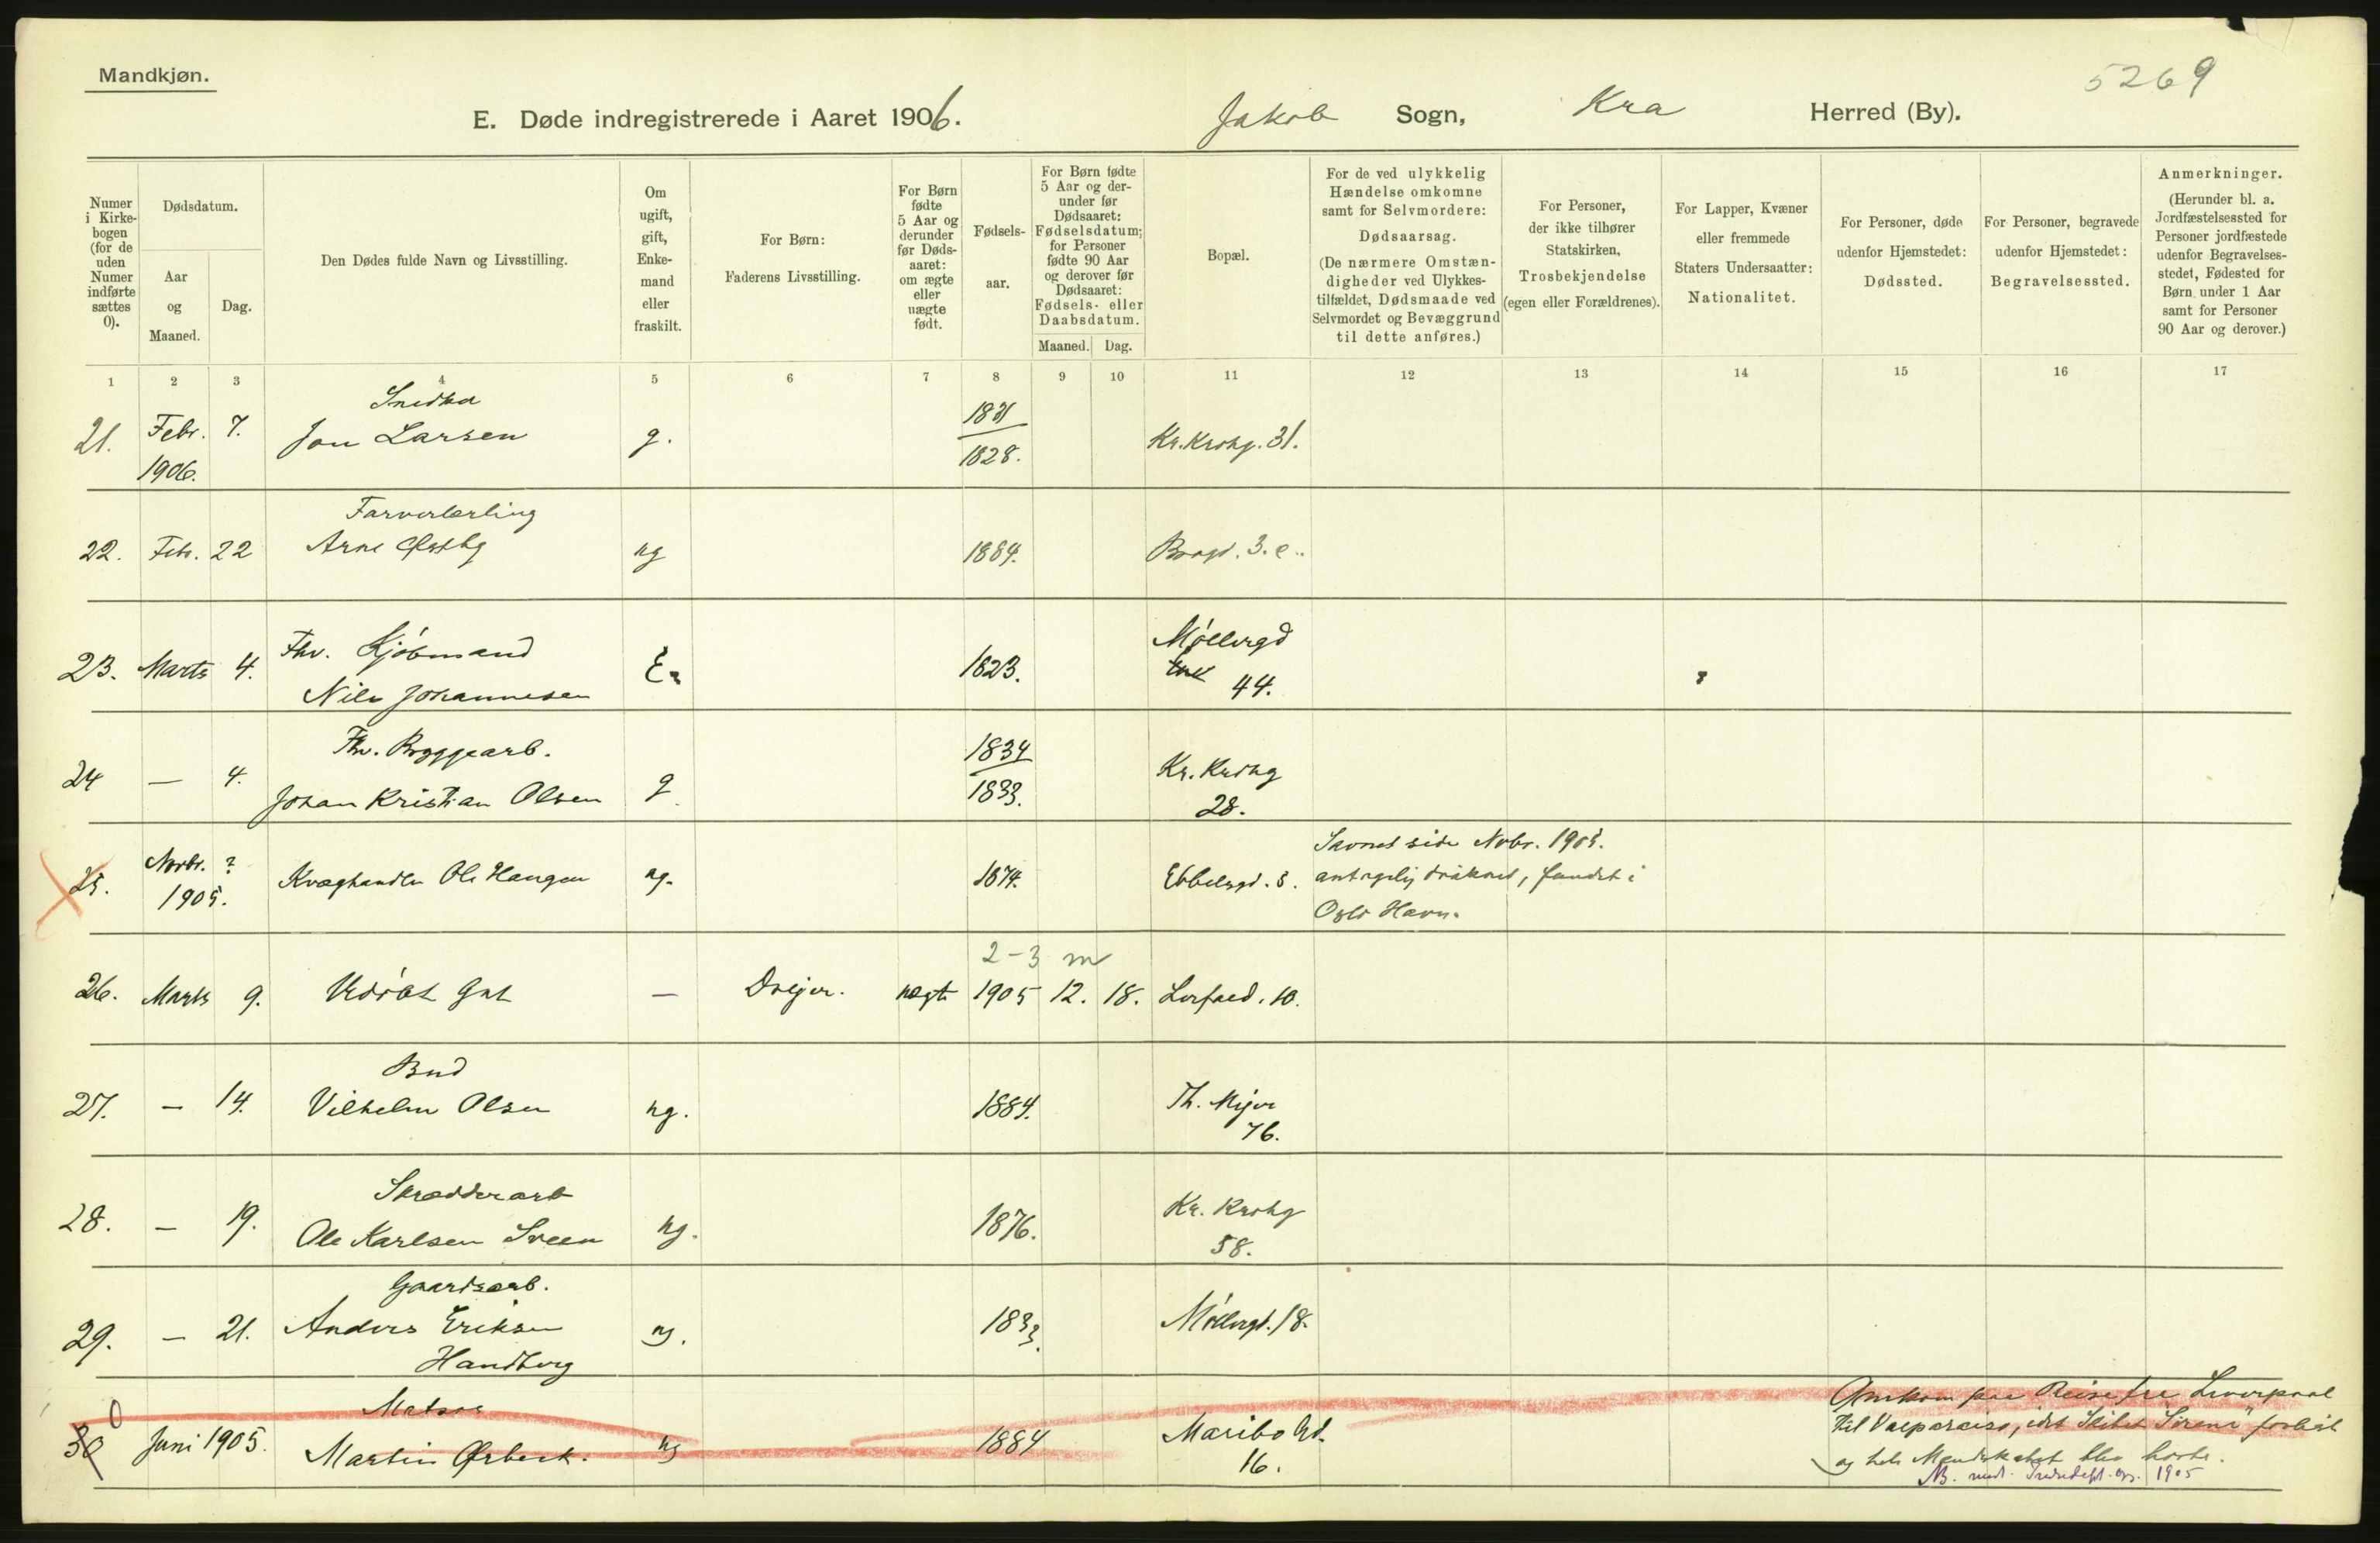 Mandkjøn.
5269
E. Døde indregistrerede i Aaret 1906. Jakob Sogn, Kra Herred (By).
Numer i Kirke-bogen (for de uden Numer indførte sættes 0).
Dødsdatum.
Aar og Maaned.
Dag.
Den Dødes fulde Navn og Livsstilling.
Om ugift, gift, Enke-mand eller fraskilt.
For Børn: Faderens Livsstilling.
For Børn fødte 5 Aar og derunder før Døds-aaret: om ægte eller uægte født.
Fødsels-aar.
For Børn fødte 5 Aar og der-under før Dødsaaret: Fødselsdatum; for Personer fødte 90 Aar og derover før Dødsaaret: Fødsels- eller Daabsdatum.
Maaned. Dag.
Bopæl.
For de ved ulykkelig Hændelse omkomne samt for Selvmordere: Dødsaarsag. (De nærmere Omstæn-digheder ved Ulykkes-tilfældet, Dødsmaade ved Selvmordet og Bevæggrund til dette anføres.)
For Personer, der ikke tilhører Statskirken, Trosbekjendelse (egen eller Forældrenes).
For Lapper, Kvæner eller fremmede Staters Undersaatter: Nationalitet.
For Personer, døde udenfor Hjemstedet: Dødssted.
For Personer, begravede udenfor Hjemstedet: Begravelsessted.
Anmerkninger. (Herunder bl. a. Jordfæstelsessted for Personer jordfæstede udenfor Begravelses-stedet, Fødested for Børn under 1 Aar samt for Personer 90 Aar og derover.)
1 2 3 4 5 6 7 8 9 10 11 12 13 14 15 16 17
Snedker 1831
21. Febr. 7. Jon Larsen g. 1828. Kr. Krohg. 31.
1906.
Farverlærling
22. Febr. 22 Arne Østby ug 1884. 3. c.
Fhv. Kjøbmand Møllergd
23. Marts 4. Nils Johannesen E. 1823. 44.
Fhv. Byggearb. 1834
24 — 4. Johan Kristian Olsen g. 1833. Kr. Krohg 28.
25. Novbr. ? 1905. Kvæghandler Ole Haugen ug. 1874. Ebbelsgd. 3. Savnet siden Nvbr. 1905.
antagelig druknet, fundet i
Oslo Havn.
2-3 m
26. Marts 9. Udøbt Gut — Dreier. uægte 1905 12. 18. 10.
Bud
27. — 14. Vilhelm Olsen ug. 1884. Th. Meyer 76.
Skrædderarb
28. — 19. Ole Karlsen Sveen ug. 1876. Kr. Krohg 58.
Gaardsarb.
29. — 21. Anders Eriksen ug. 1833. Møllergd. 18.
Handberg
Matros Omkom paa Reise fra Liverpool
30 0 Juni 1905. Martin Ørbeck. ug 1884 Maribo Gd. 16. til Valparaiso, idet Skibet "Sirene" forliste
og hele Mandskabet blev borte.
1905